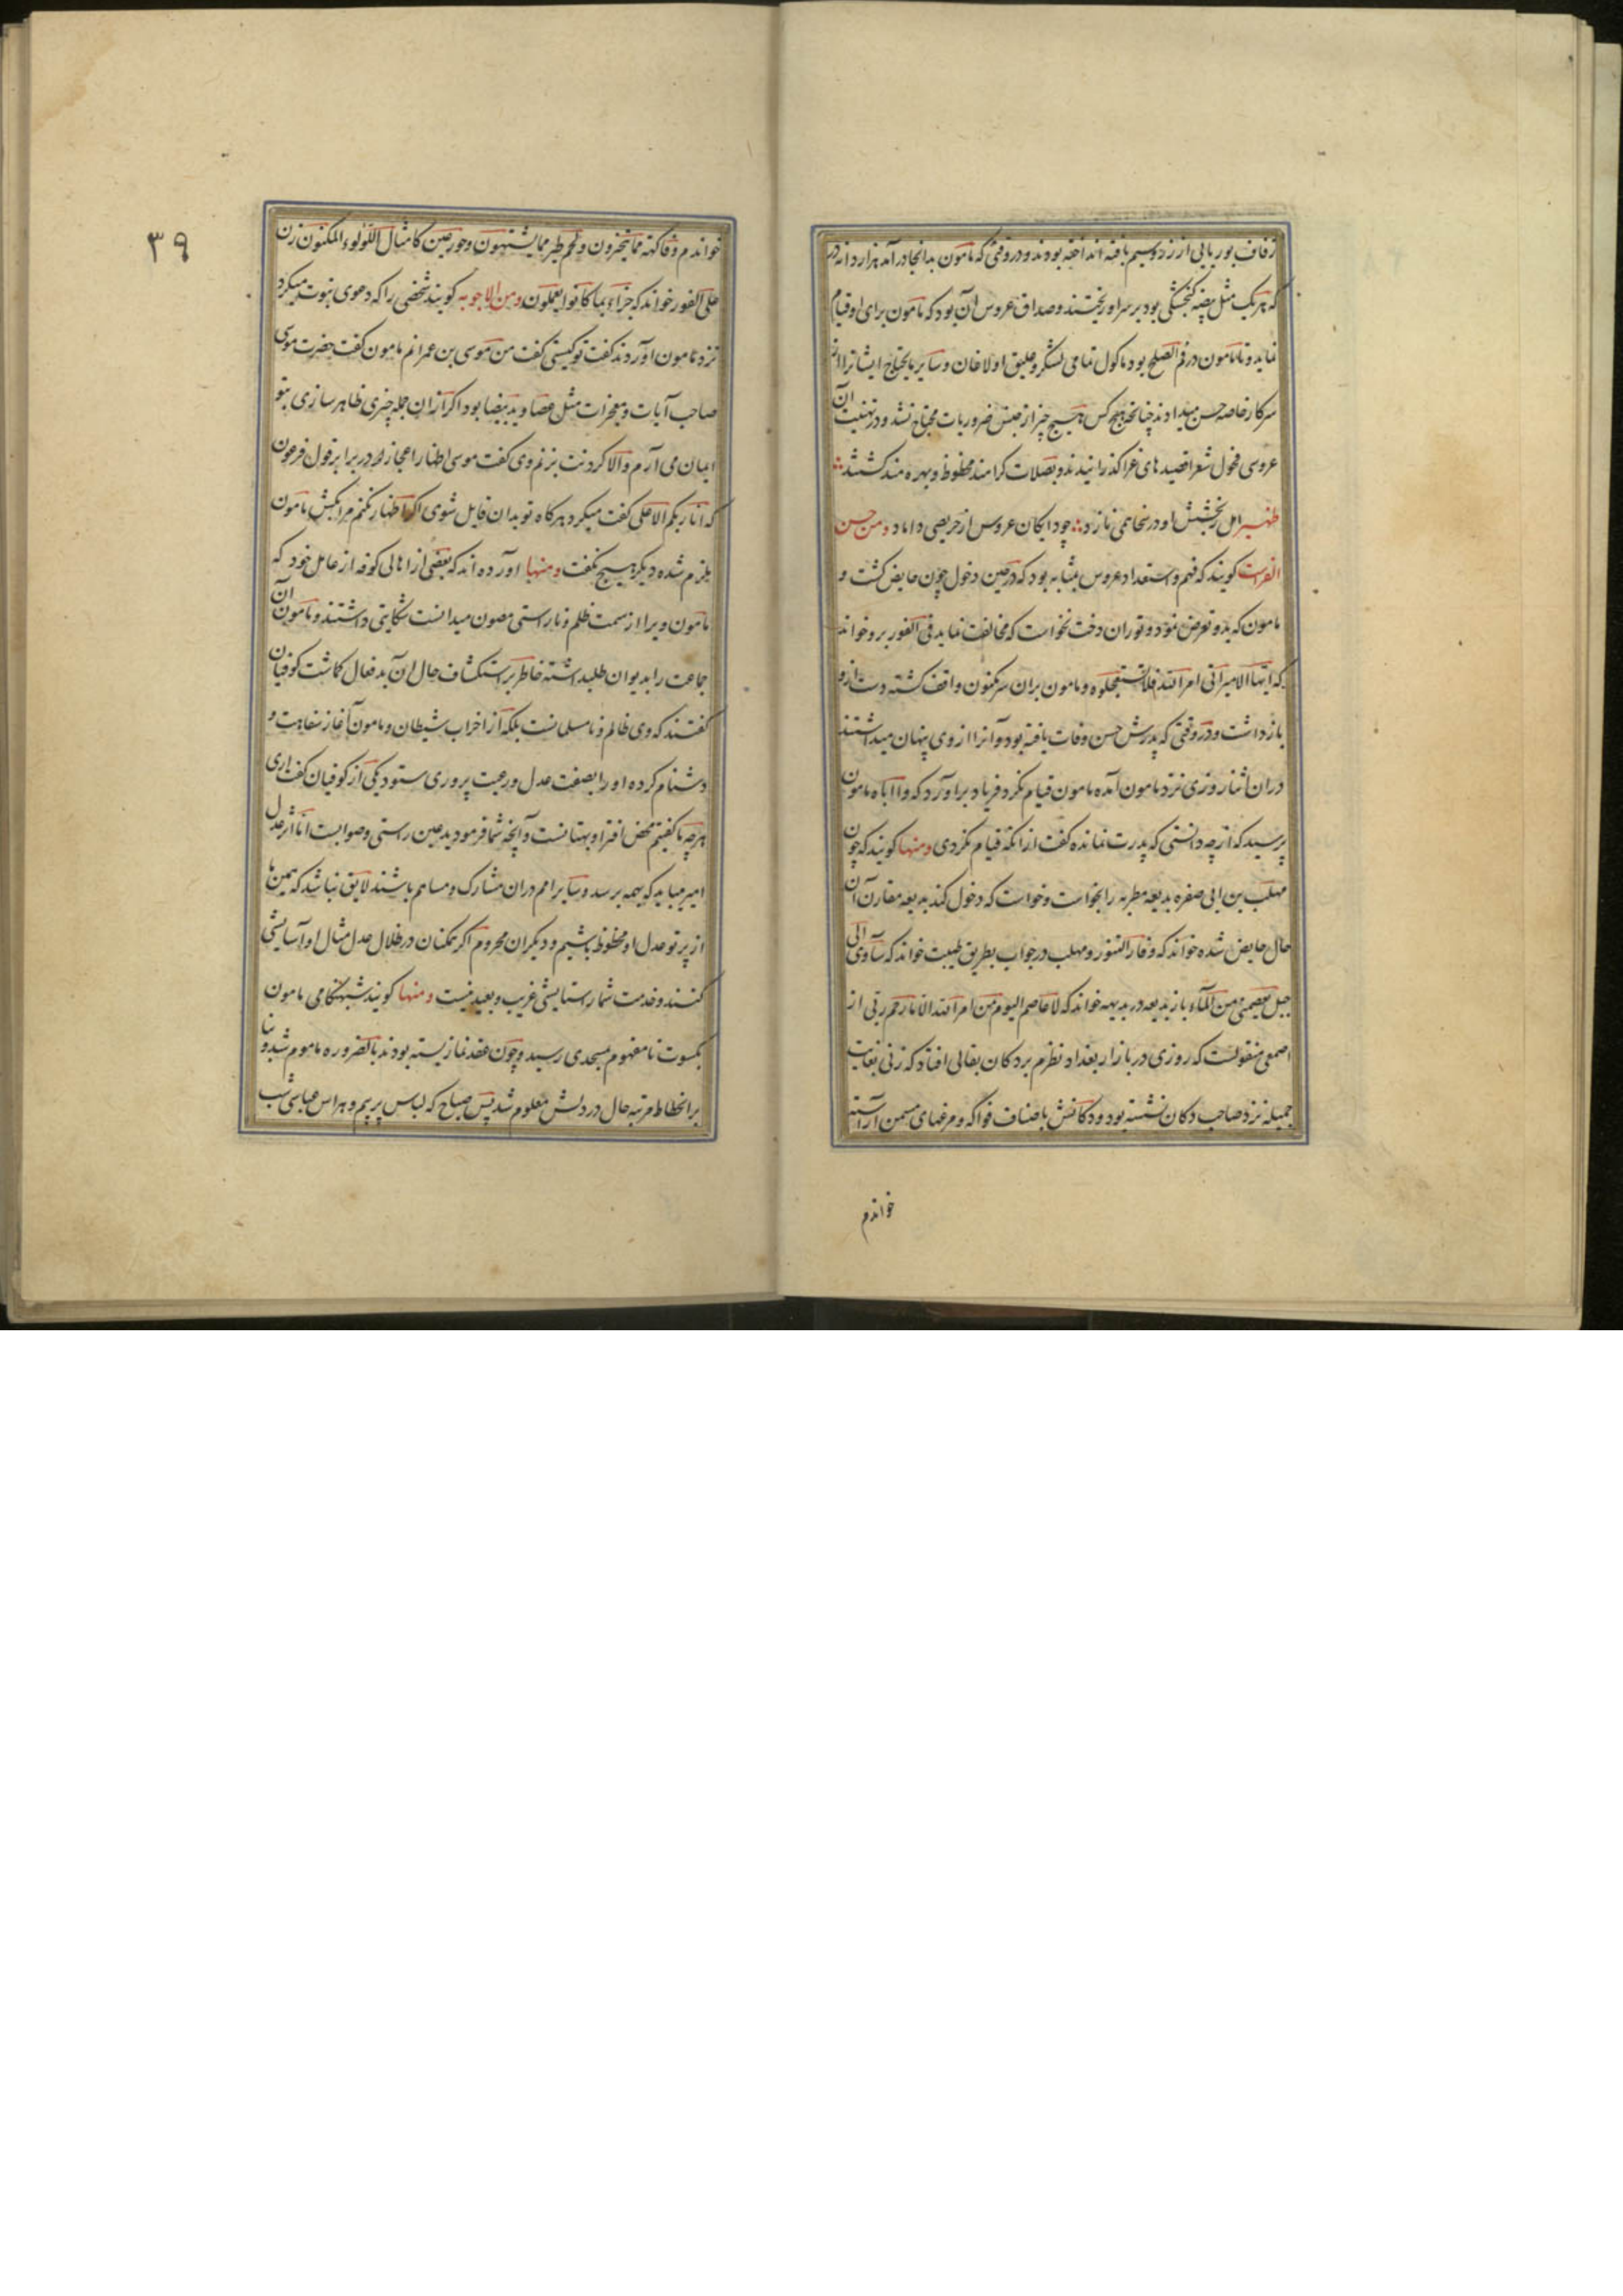 زفاف بوریایی از زر و سیم بافته انداخته بودند و در وقتی که مامون بدانجا درآمد هزار دانه در
که هر یک مثل بیضه کنجشکی بود بر سر او ریختند و صداق عروس آن بود که مامون برای او قیام
نماید و تا مامون در فم الصلح بود ماکول تمامی لشکر و علیق اولاغان و سایر مایحتاج ایشانرا از
سرکار خاصه حسن میدادند چنانچه هیچ کس بهیچ چیز از جنس ضروریات محتاج نشد و در تهنیت آن
عروسی فحول شعرا قصیدهای غرا کذرانیدند و بصلات کرامند محظوظ و بهره مند کشتند
ظهیر امل ز بخشش او در نخاممی نازد چو دایکان عروس از حریصی داماد ومن حسن
الفراست کویند که فهم و استعداد عروس بمثابه بود که در حین دخول چون حایض کشت و
مامون که بدو تعرض نمود و توران دخت نخواست که مخالفت نماید فی الفور برو خواند
که ایتها الامیر اتی امر الله فلا تستعجلوه و مامون بران سر مکنون واقف کشته دست ازو
بازداشت و در وقتی که پدرش حسن وفات یافته بود و آنرا از وی پنهان میداشتند
دران اثنا روزی نزد مامون آمده مامون قیام نکرد فریاد برآورد که وا اباه مامون
پرسید که از چه دانستی که پدرت نمانده کفت از انکه قیام نکردی ومنها کویند که چون
مهلب بن ابی صفره بدیعه مطربه را بخواست و خواست که دخول کند بدیعه مقارن آن
حال حایض شده خواند که وفار التنور و مهلب در جواب بطریق طیبت خواند که سآوی الی
جبل یعصمنی من المآء باز بدیعه در بدیهه خواند که لا عاصم الیوم من امر الله الا ما رحم ربی از
اصمعی منقولست که روزی در بازار بغداد نظرم بر دکان بقالی افتاد که زنی بغایت
جمیله نزد صاحب دکان نشسته بود و دکانش باصناف فواکه و مرغهای مسمن آراسته
خواندم
٣٩
خواندم وفاکهة مما یتخیرون ولحم طیر مما یشتهون وحور عین کامثال اللؤلوء المکنون زن
علی الفور خواند که جزاء بما کانوا یعملون ومن الاجوبه کویند شخصی را که دعوی نبوت میکرد
نزد مامون آوردند کفت تو کیستی کفت من موسی بن عمرانم مامون کفت حضرت موسی
صاحب آیات و معجزات مثل عصا و ید بیضا بود اکر ازان جمله چیزی ظاهر سازی بتو
ایمان می آرم والا کردنت بزنم وی کفت موسی اظهار اعجاز در برابر قول فرعون
که انا ربکم الاعلی کفت میکرد هرکاه تو بدان قایل شوی اکر اظهار نکنم مرا بکش مامون
ملزم شده دیکر هیچ نکفت ومنها آورده اند که بعضی از اهالی کوفه از عامل خود که
مامون ویرا از سمت ظلم و ناراستی مصون میدانست شکایتی داشتند و مامون آن
جماعت را بدیوان طلبداشته خاطر بر استکشاف حال آن بدفعال کماشت کوفیان
کفتند که وی ظالم و نامسلمانست بلکه از احزاب شیطان و مامون آغاز سفاهت و
دشنام کرده او را بصفت عدل و رعیت پروری ستود یکی از کوفیان کفت آری
هرچه ما کفتیم محض افترا و بهتانست و آنچه شما فرمودید عین راستی و صوابست اما اثر عدل
امیر میباید که بهمه برسد و سایر امم دران مشارک و مساهم باشند لایق نباشد که همین ما
از پرتو عدل او محظوظ باشیم و دیکران محروم اکر همکنان در ظلال عدل مثال او آسایشی
کنند و خدمت شما را ستایشی غریب و بعید نیست ومنها کویند شبهنکامی مامون
بکسوت نامفهوم بمسجدی رسید و چون عقد نماز بسته بودند بالضروره ماموم شد و بنا
بر انحطاط مرتبه حال در دلش معلوم شد پس صباح که لباس پر بیم و هراس عباسی شب